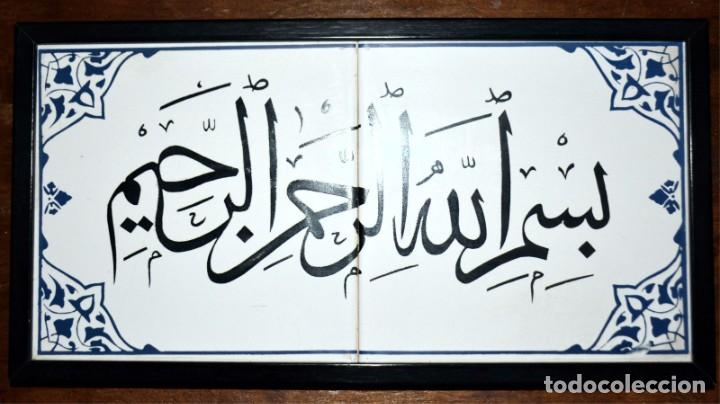 بسم ٱلله ٱلرحمن ٱلرحيم
todocoleccion